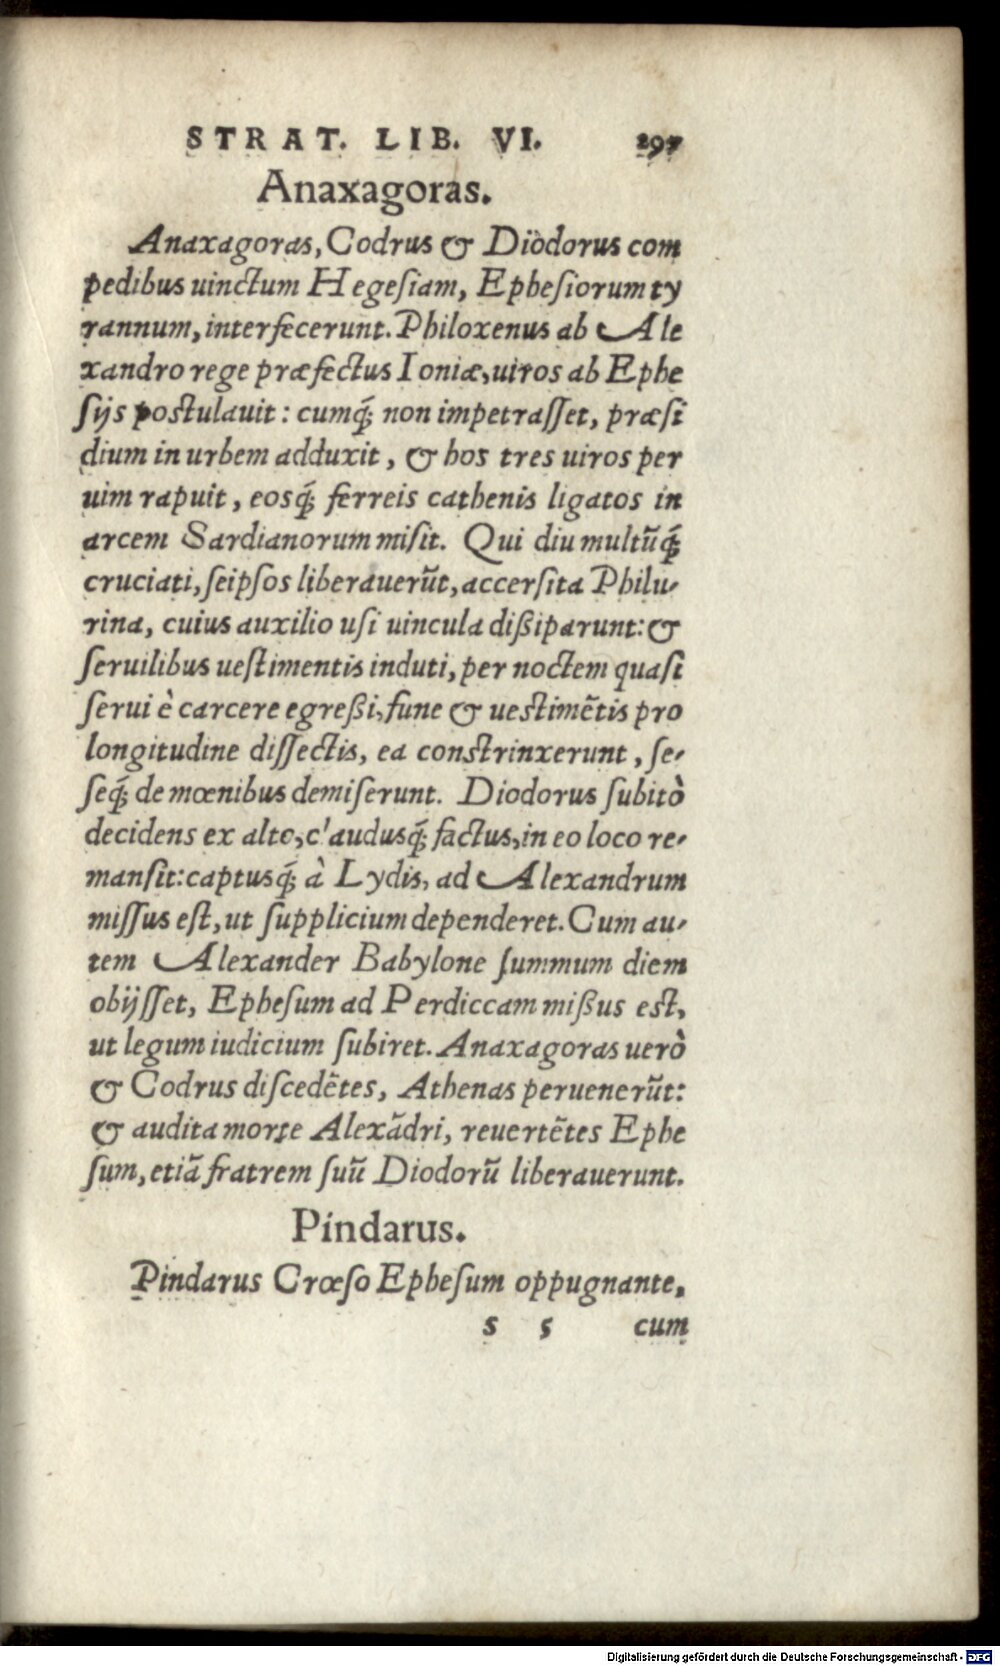 STRAT. LIB. VI. 297
Anaxagoras.
Anaxagoras, Codrus & Diodorus com
pedibus uinctum Hegeſiam, Epheſiorum ty
rannum, interfecerunt. Philoxenus ab Ale
xandro rege præfectus Ioniæ, uiros ab Ephe
ſijs poſtulauit: cumq́; non impetraſſet, præſi
dium in urbem adduxit, & hos tres uiros per
uim rapuit, eosq́; ferreis cathenis ligatos in
arcem Sardianorum miſit. Qui diu multũq́;
cruciati, ſeipſos liberauerũt, accerſita Philu-
rina, cuius auxilio uſi uincula dißiparunt: &
ſeruilibus ueſtimentis induti, per noctem quaſi
ſerui è carcere egreßi, fune & ueſtimẽtis pro
longitudine diſſectis, ea conſtrinxerunt, ſe-
ſeq́; de mœnibus demiſerunt. Diodorus ſubitò
decidens ex alto, claudusq́; factus, in eo loco re-
manſit: captusq́; à Lydis, ad Alexandrum
miſſus eſt, ut ſupplicium dependeret. Cum au-
tem Alexander Babylone ſummum diem
obijſſet, Epheſum ad Perdiccam mißus eſt,
ut legum iudicium ſubiret. Anaxagoras uerò
& Codrus diſcedẽtes, Athenas peruenerũt:
& audita morte Alexãdri, reuertẽtes Ephe
ſum, etiã fratrem ſuũ Diodorũ liberauerunt.
Pindarus.
Pindarus Crœſo Epheſum oppugnante,
s 5 cum
Digitalisierung gefördert durch die Deutsche Forschungsgemeinschaft - DFG